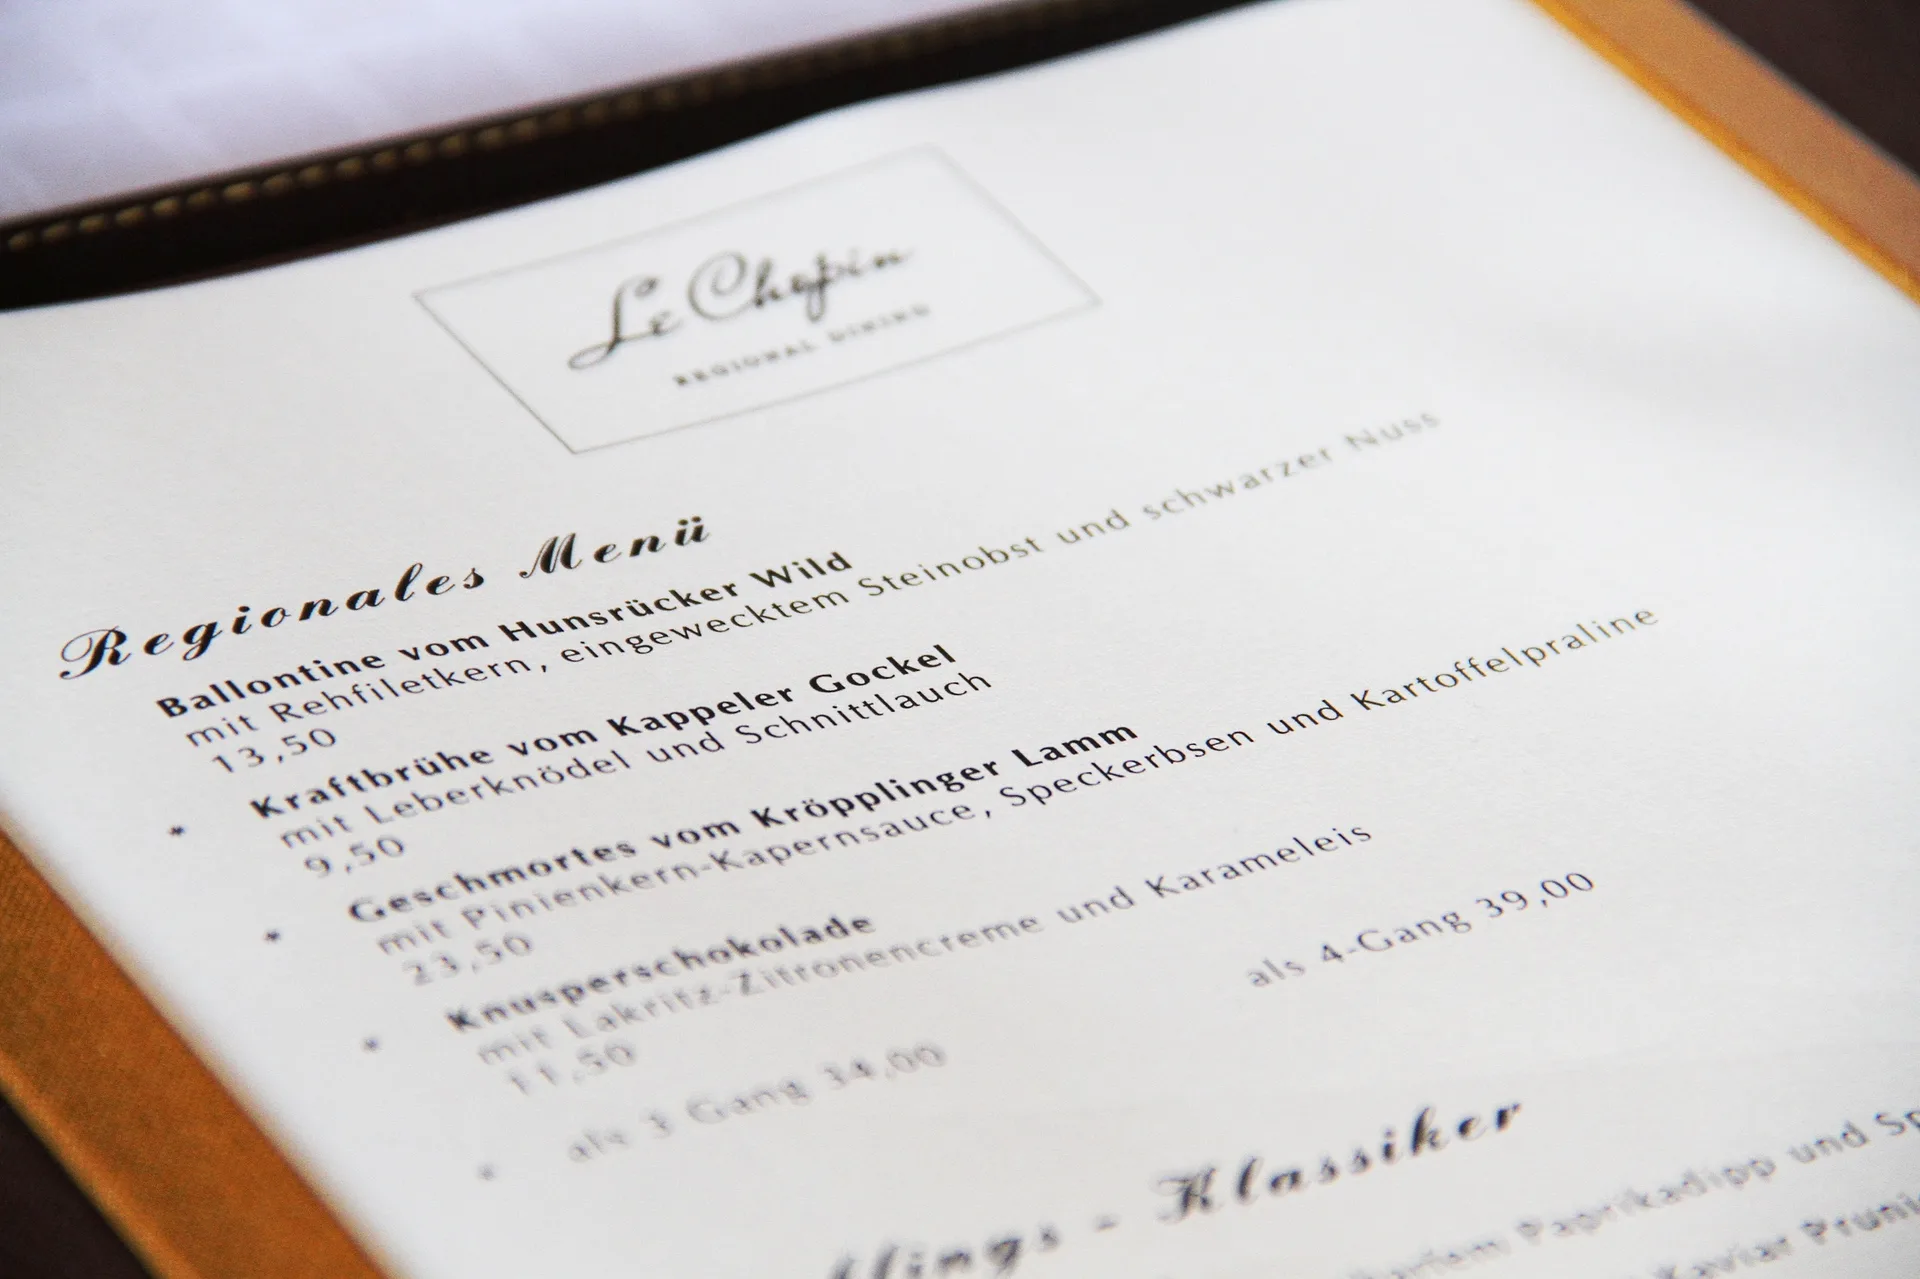 Le Chopin
REGIONAL DINING
Regionales Menü
Ballontine vom Hunsrücker Wild
mit Rehfiletkern, eingewecktem Steinobst und schwarzer Nuss
13,50
*
Kraftbrühe vom Kappeler Gockel
mit Leberknödel und Schnittlauch
9,50
*
Geschmortes vom Kröpplinger Lamm
mit Pinienkern-Kapernsauce, Speckerbsen und Kartoffelpraline
23,50
*
Knusperschokolade
mit Lakritz-Zitronencreme und Karameleis
11,50
*
als 3 Gang 34,00
als 4-Gang 39,00
- Klassiker
Paprikadipp und
Kaviar